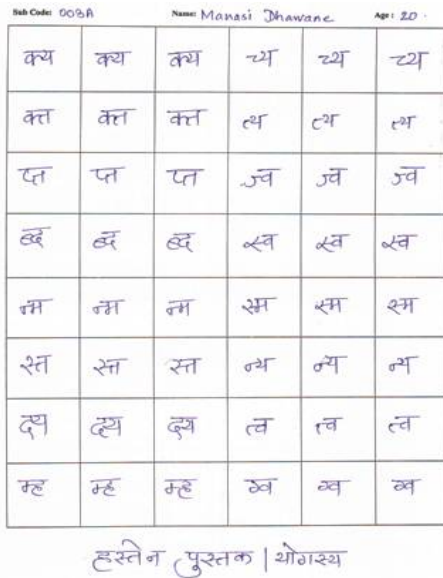 Sub Code: 003A Name: Manasi Dhawane Age: 20.
क्य क्य क्य च्य च्य च्य
क्त क्त क्त त्थ त्थ त्थ
प्त प्त प्त ज्व ज्व ज्व
ब्द ब्द ब्द स्व स्व स्व
न्म न्म न्म स्म स्म स्म
स्त स्त स्त न्थ न्य न्थ
द्य द्य द्य त्व त्व त्व
म्ह म्ह म्ह ग्व ग्व ग्व
हस्तेन पुस्तक | योगस्य